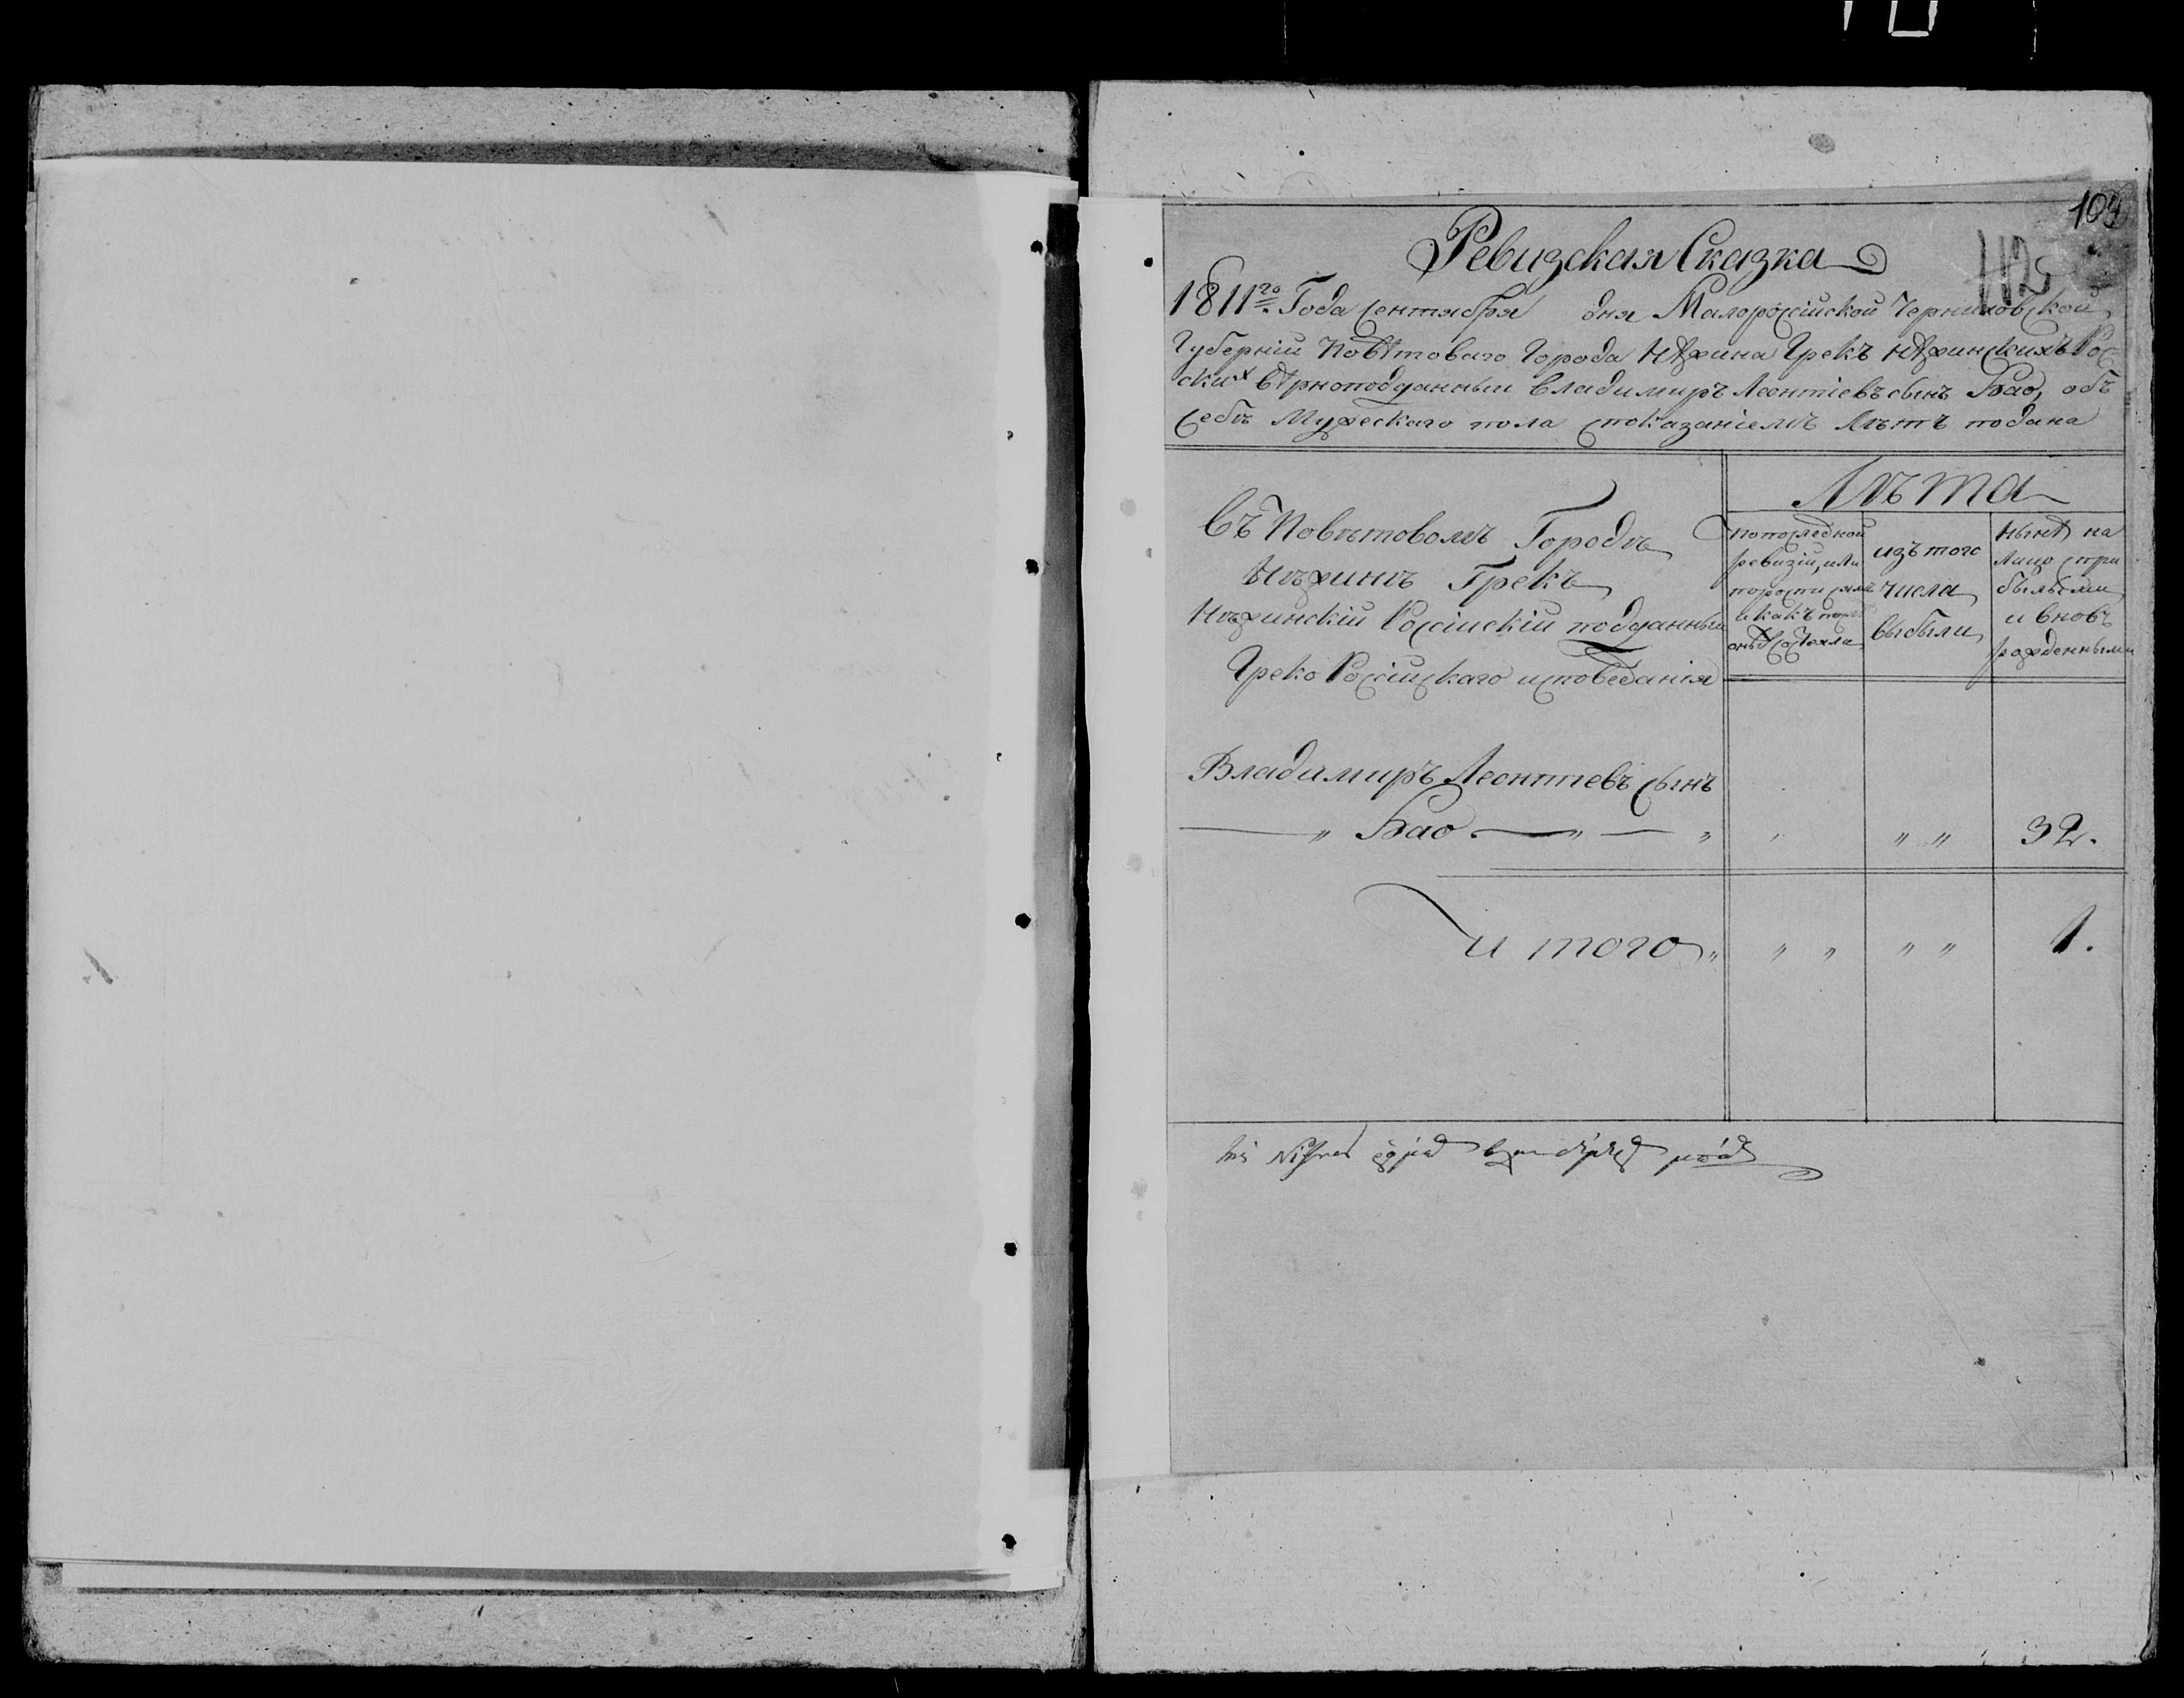 109
112
Ревизская Сказка
1811го Года Сентября дня Малоросійской Черниховской
Губерніи Повѣтоваго Города Нѣжина Грекъ Нѣжинскихъ Рос=
скихъ вѣрноподданный Владимиръ Леонтіевъ сынъ Бао, объ
себѣ Мужескаго пола споказаніемъ Лѣтъ подана
Въ Повѣтовомъ Городѣ
Нѣжинѣ Грекъ
Нѣжинскій Россійскій подданный
Греко Россійскаго исповеданія
Лѣта
попоследной
ревизіи, или
изъ того
числа
выбыли
нынѣ на
Лицо спри
былыми
и вновъ
рожденными
Владимиръ Леонтіевъ сынъ
" Бао " " " " 32.
и того " " " " " 1.